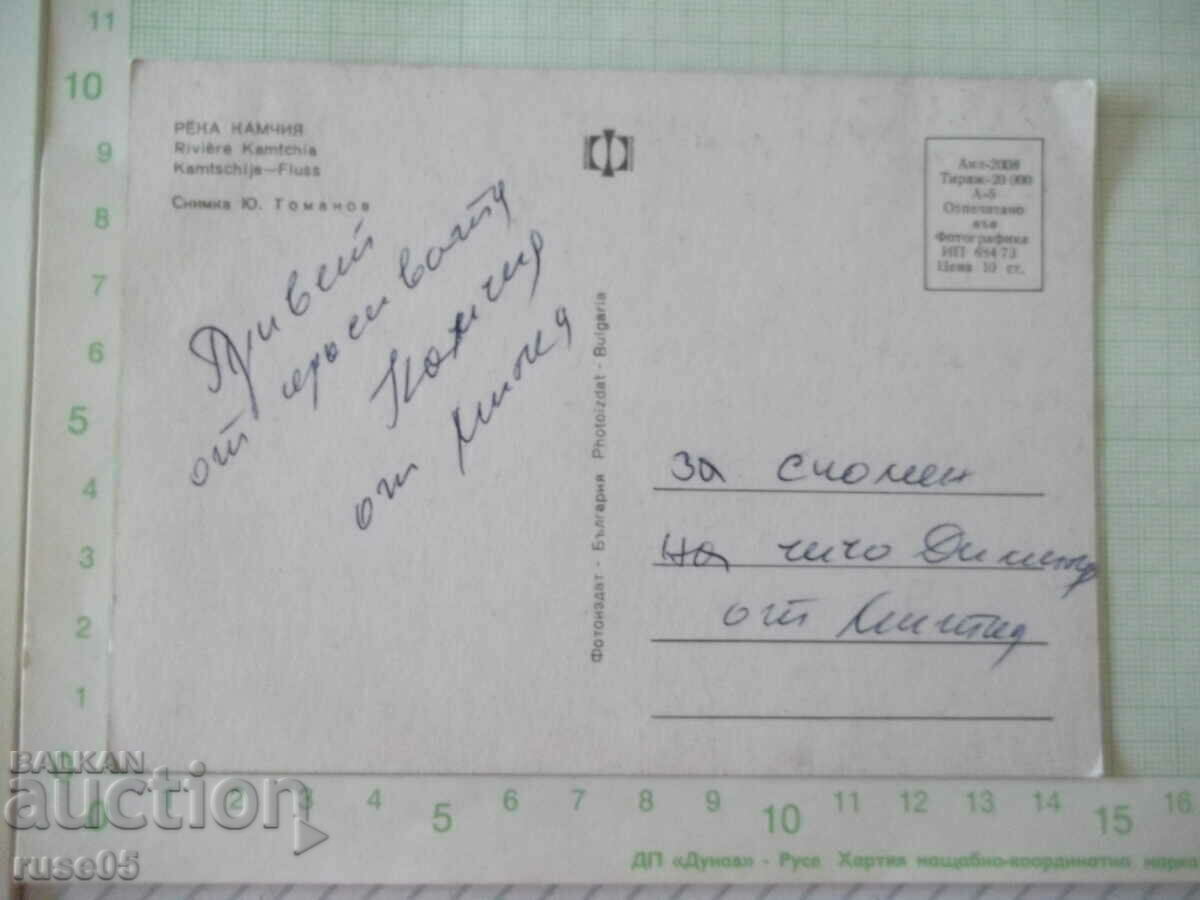 РЕКА КАМЧИЯ
Rivière Kamtchia
Kamtschija—Fluss
Снимка Ю. Томанов
Акл-2008
Тираж-20 000
А-6
Отпечатано
във
Фотографика
ИП 684-73
Цена 10 ст.
Привет
от красивата
Камчия
от
Фотоиздат - България Photoizdat - Bulgaria
за спомен
на чичо
от
11
10
9
8
7
6
5
4
3
2
1
0
0 1 2 3 4 5 6 7 8 9 10 11 12 13 14 15 16
ДП «Дунав» - Русе Хартия мащабно-координатна марка
BALKAN
auction
ruse05